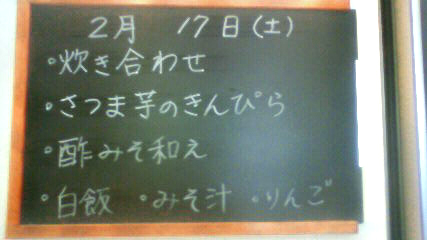 2月 17日(土)
・炊き合わせ
・さつま芋のきんぴら
・酢みそ和え
・白飯 ・みそ汁 ・りんご